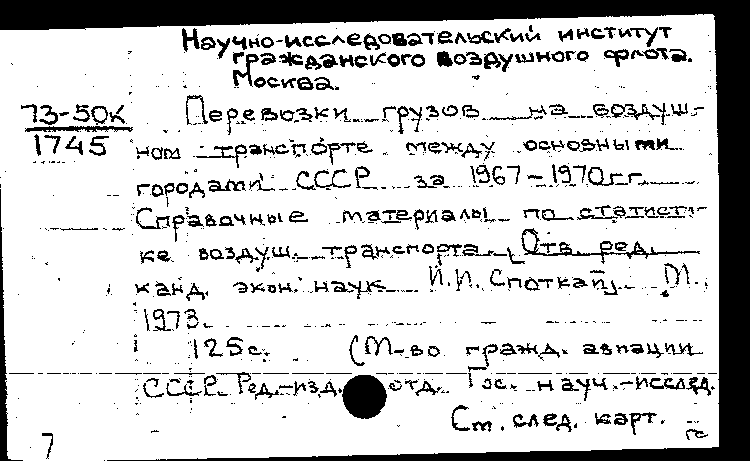 Научно-исследовательский институт
гражданского воздушного флота.
Москва.
73-50к
1745
Перевозки грузов на воздуш-
ном транспорте между основными
городами СССР за 1967-1970гг.
Справочные материалы по статисти-
ке воздуш. транспорта. [Отв. ред.
канд. экон. наук И.И. Споткай]. М.,
1973.
125с. (М-во гражд. авиации
СССР. Ред.-изд. отд. Гос. науч.-исслед.
Ст. след. карт.
7